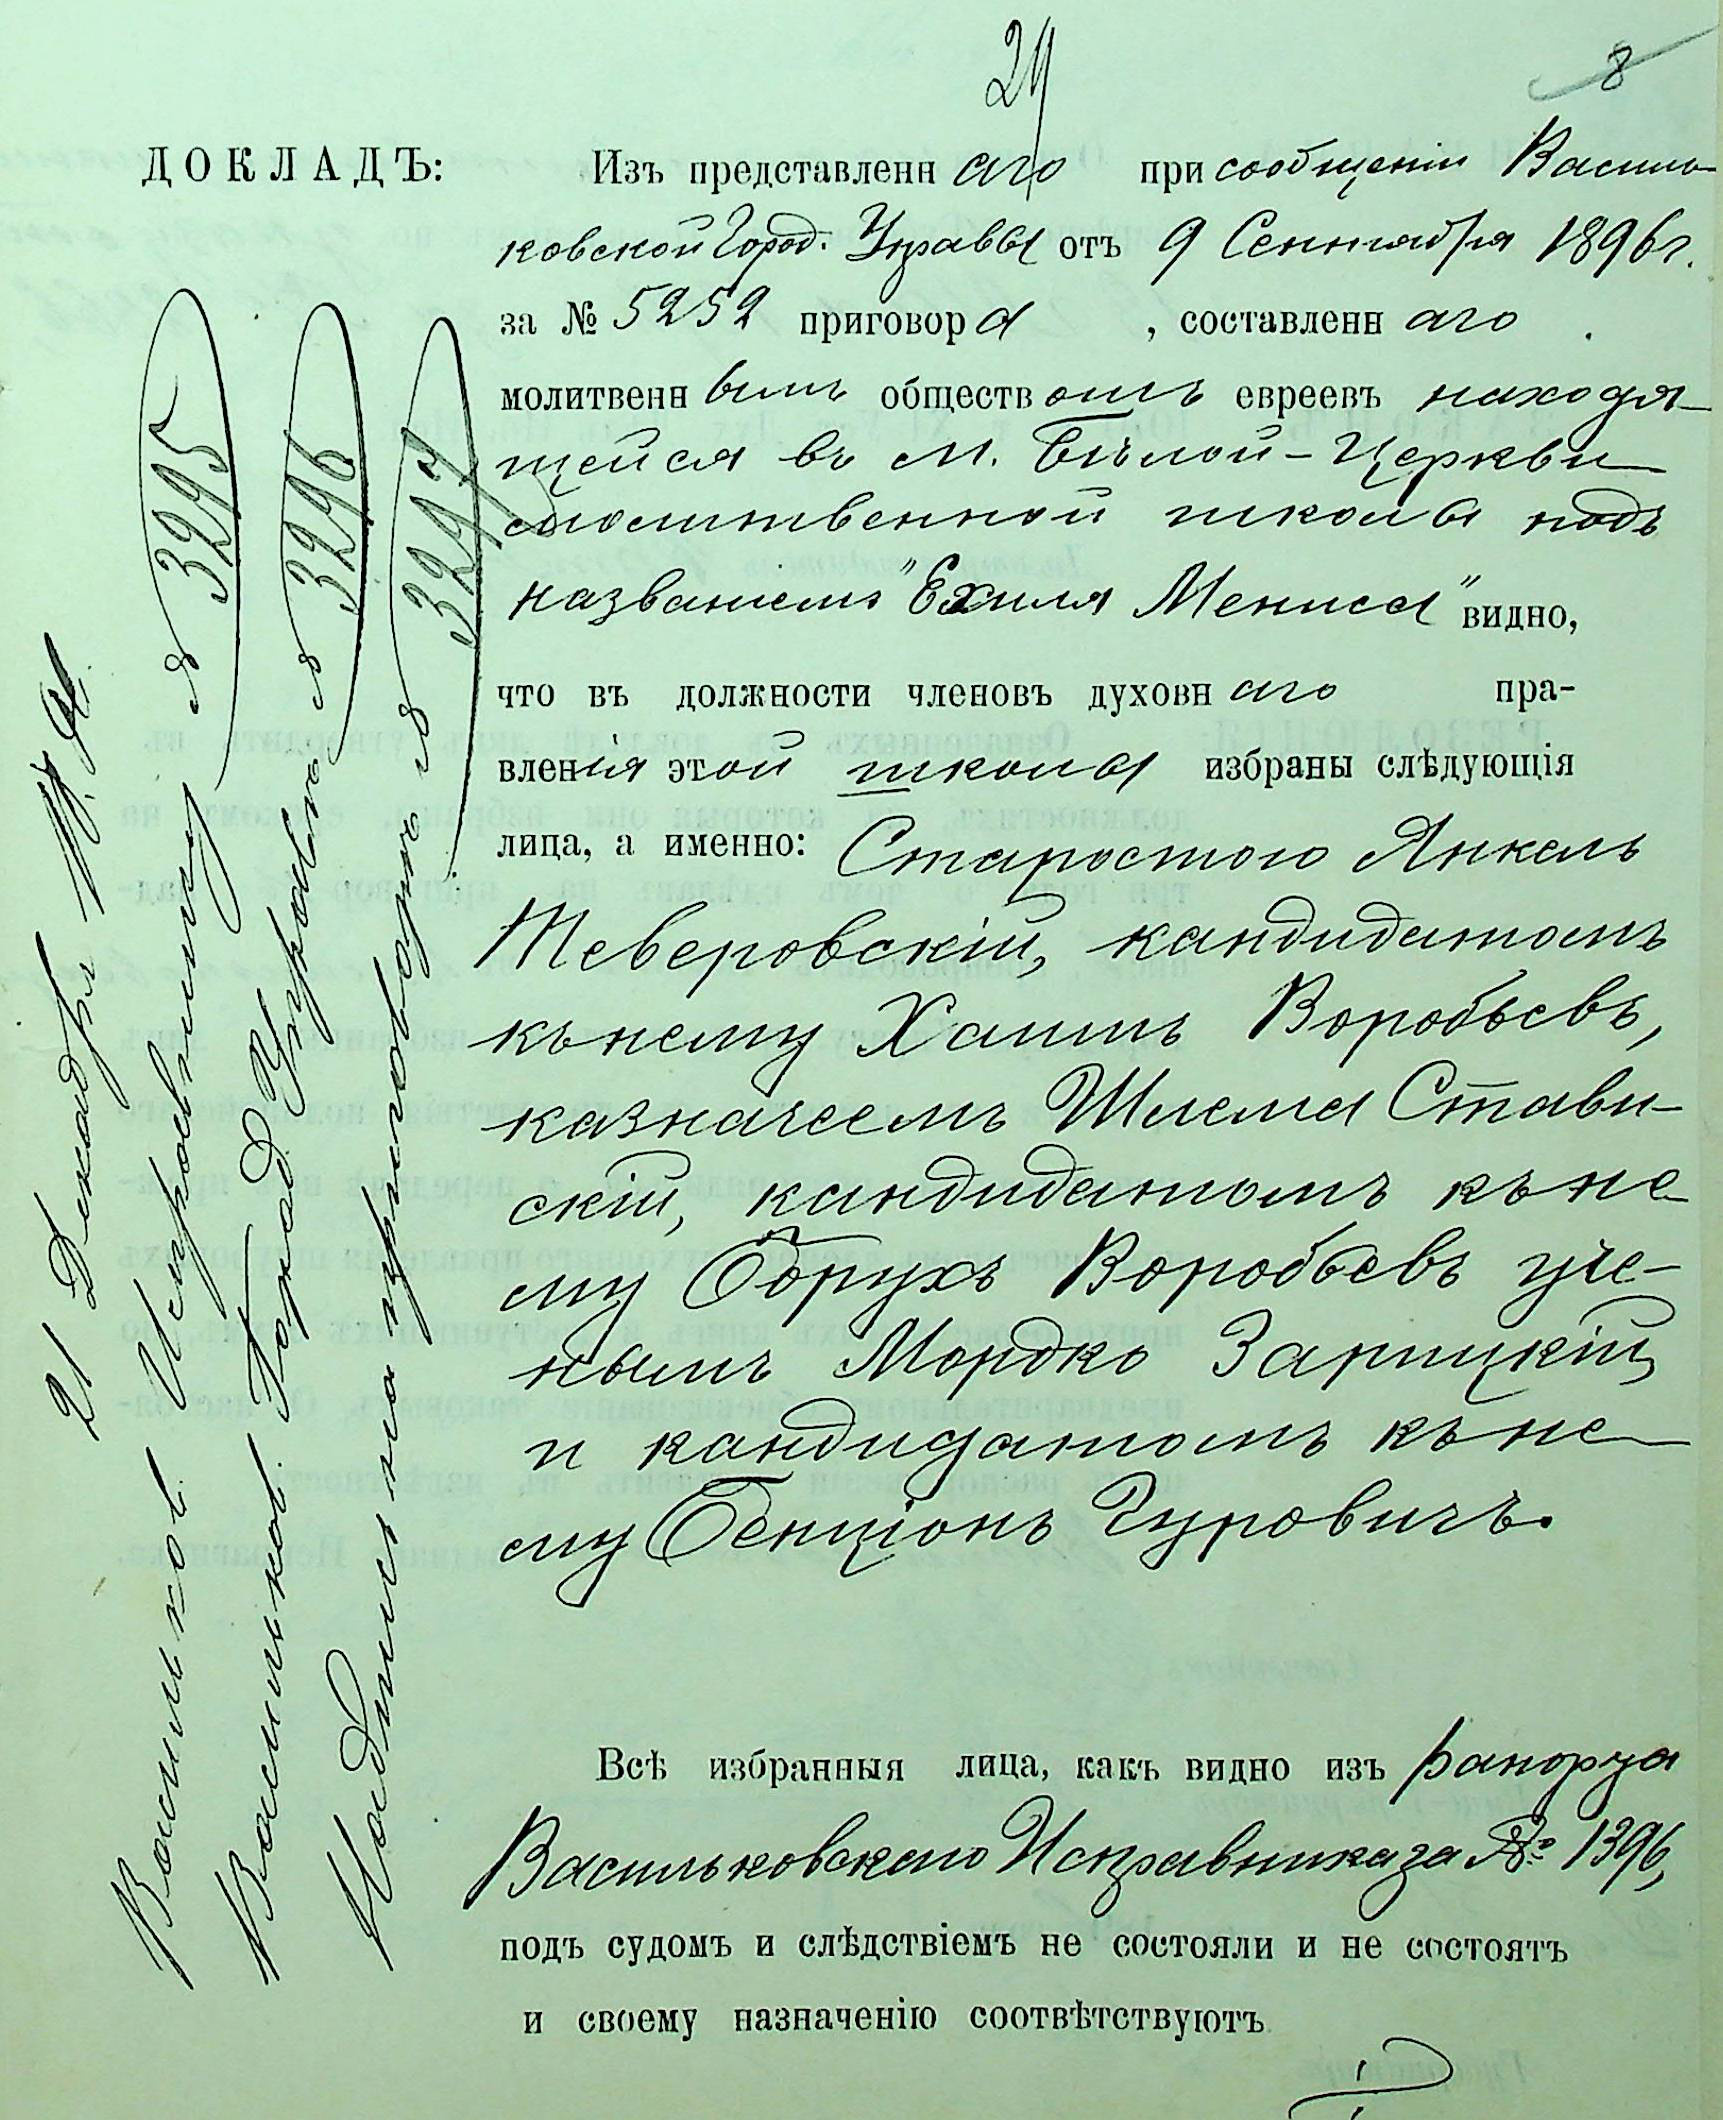 29
8
ДОКЛАДЪ:
Изъ представленнаго при сообщеніи Василь-
ковской Город. Управы отъ 9 Сентября 1896 г.
за № 5252 приговора, составленнаго
молитвеннымъ обществомъ евреевъ находя-
щейся въ м. Бѣлой-Церкви
молитвенной школы подъ
названіемъ "Ехиля Мениса" видно,
что въ должности членовъ духовнаго пра-
вленія этой школы избраны слѣдующія
лица, а именно: Старостою Янкель
Теверовскій, кандидатомъ
къ нему Хаимъ Воробьевъ,
казначеемъ Шлема Стави-
скій, кандидатомъ къ не-
му Борухъ Воробьевъ уче-
нымъ Мордко Зарицкій
и кандидатомъ къ не-
му Бенціонъ Гуровичъ.
Всѣ избранныя лица, какъ видно изъ рапорта
Васильковскаго Исправника за № 1396,
подъ судомъ и слѣдствіемъ не состояли и не состоятъ
и своему назначенію соотвѣтствуютъ
21 Декабря
Васильков. Исправнику 3295
Васильков. Город Управѣ 3296
Надпись на приговорѣ 3297